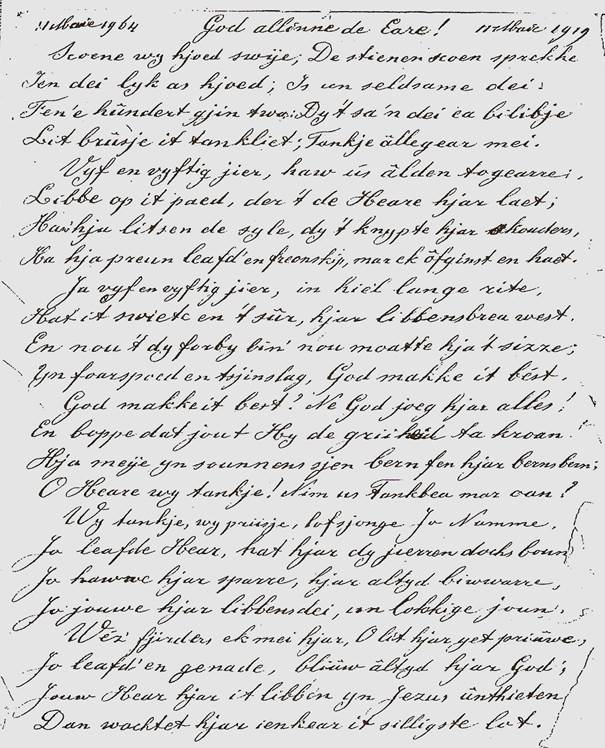 11 Maie 1964 God allinne de Eare! 11 Maie 1919
Scoene wy hjoed swije; De stienen scoen sprekke
Ien dei lyk as hjoed; Is un seldsame dei:
Fen'e hûndert gjin twa: Dy't sa'n dei ea bilibje
Lit brûsje it tankliet; Tankje âllegear mei.
Vyf en vyftig jier, haw ús âlden togearre;
Libbe op it paed, der't de Heare hjar laet;
Haw hja litsen de syle, dy't knypte hjar skouders,
Ha hja preun leafd'en freonskip, mar ek ôfginst en haet.
Ja vyf en vyftig jier, in hiel lange rite,
Hat it swiete en 't sûr, hjar libbensbrea west.
En nou't dy forby bin' nou moatte hja't sizze;
Yn foarspoed en tsjinslag, God makke it bést.
God makke it bert? Ne God joeg hjar alles!
En boppe dat jout Hy de griisheid ta kroan.
Hja meije yn sounnens sjen bern fen hjar bernsbern;
O Heare wy tankje! Nim us Tankbea mar oan?
Wy tankje, wy priisje, lofsjonge Jo Namme,
Jo leafde Hear, hat hjar dy jierren dochs boun
Jo hawwe hjar sparre, hjar altyd biwarre,
Jo jouwe hjar libbensdei, un lokkige joun.
Wêz' fjirders ek mei hjar, O lit hjar yet priuwe,
Jo leafd'en genade, bliuw âltyd hjar God;
Jouw Hear hjar it libben yn Jezus ûnthieten
Dan wachtet hjar ienkear it silligste lot.